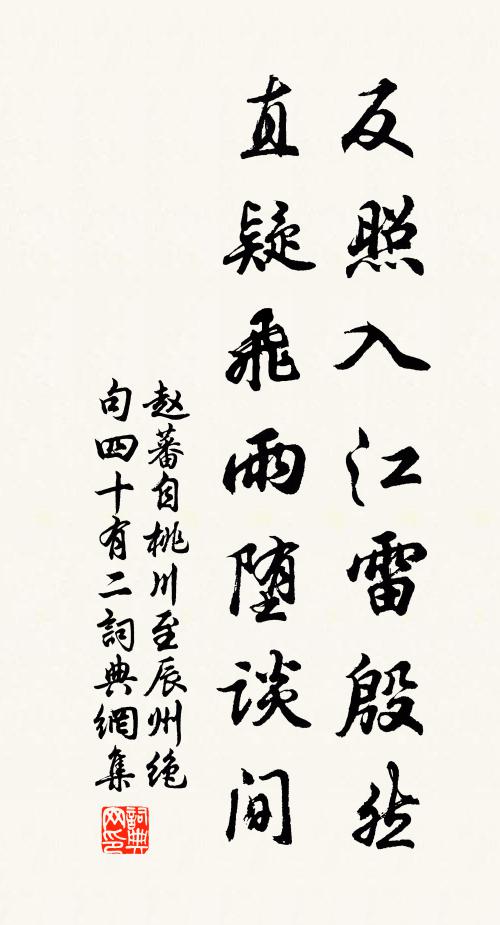 反照入江雷殷然
直疑飛雨堕谈间
赵蕃自桃川至辰州绝
句四十有二詞典網集
詞典
网印